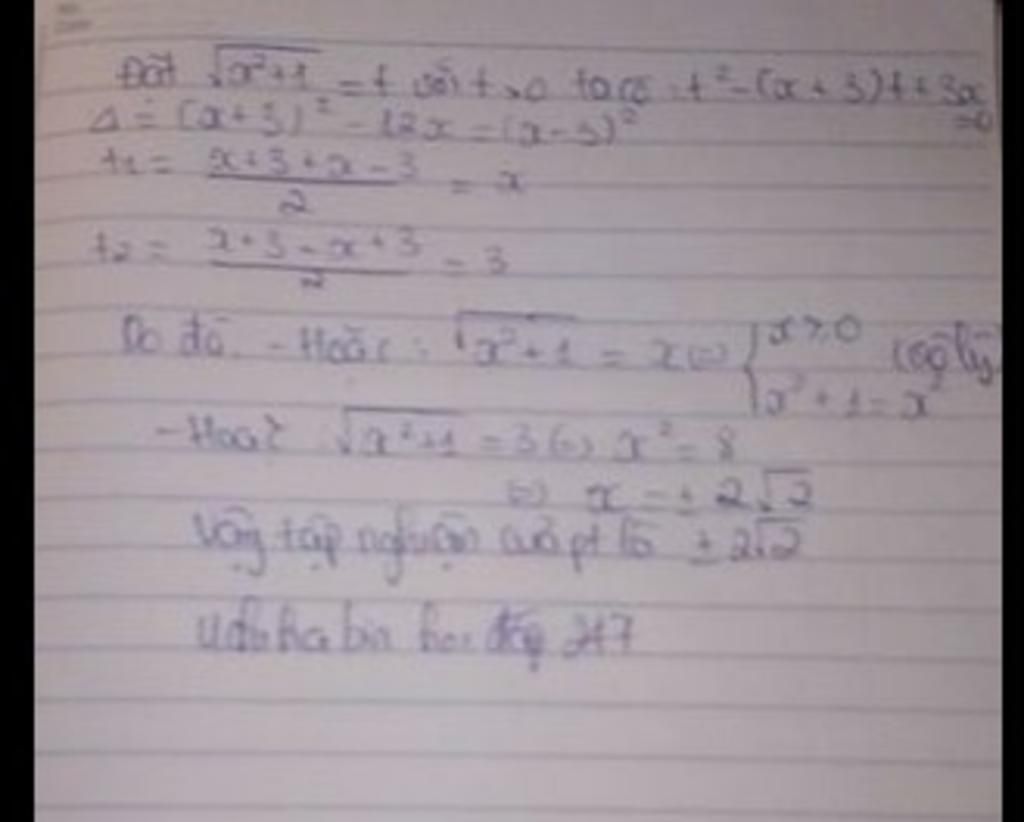 Đặt √(x²+1) = t với t>0 ta có t² - (x+3)t + 3x
=0
Δ = (x+3)² - 12x = (x-3)²
t1 = (x+3+x-3)/2 = x
t2 = (x+3-x+3)/2 = 3
Do đó - Hoặc: √(x²+1) = x (=) { x≥0 x²+1=x²
- Hoặc √(x²+1) = 3 (=) x² = 8
(=) x = ± 2√2
Vậy tập nghiệm của pt là ± 2√2
247